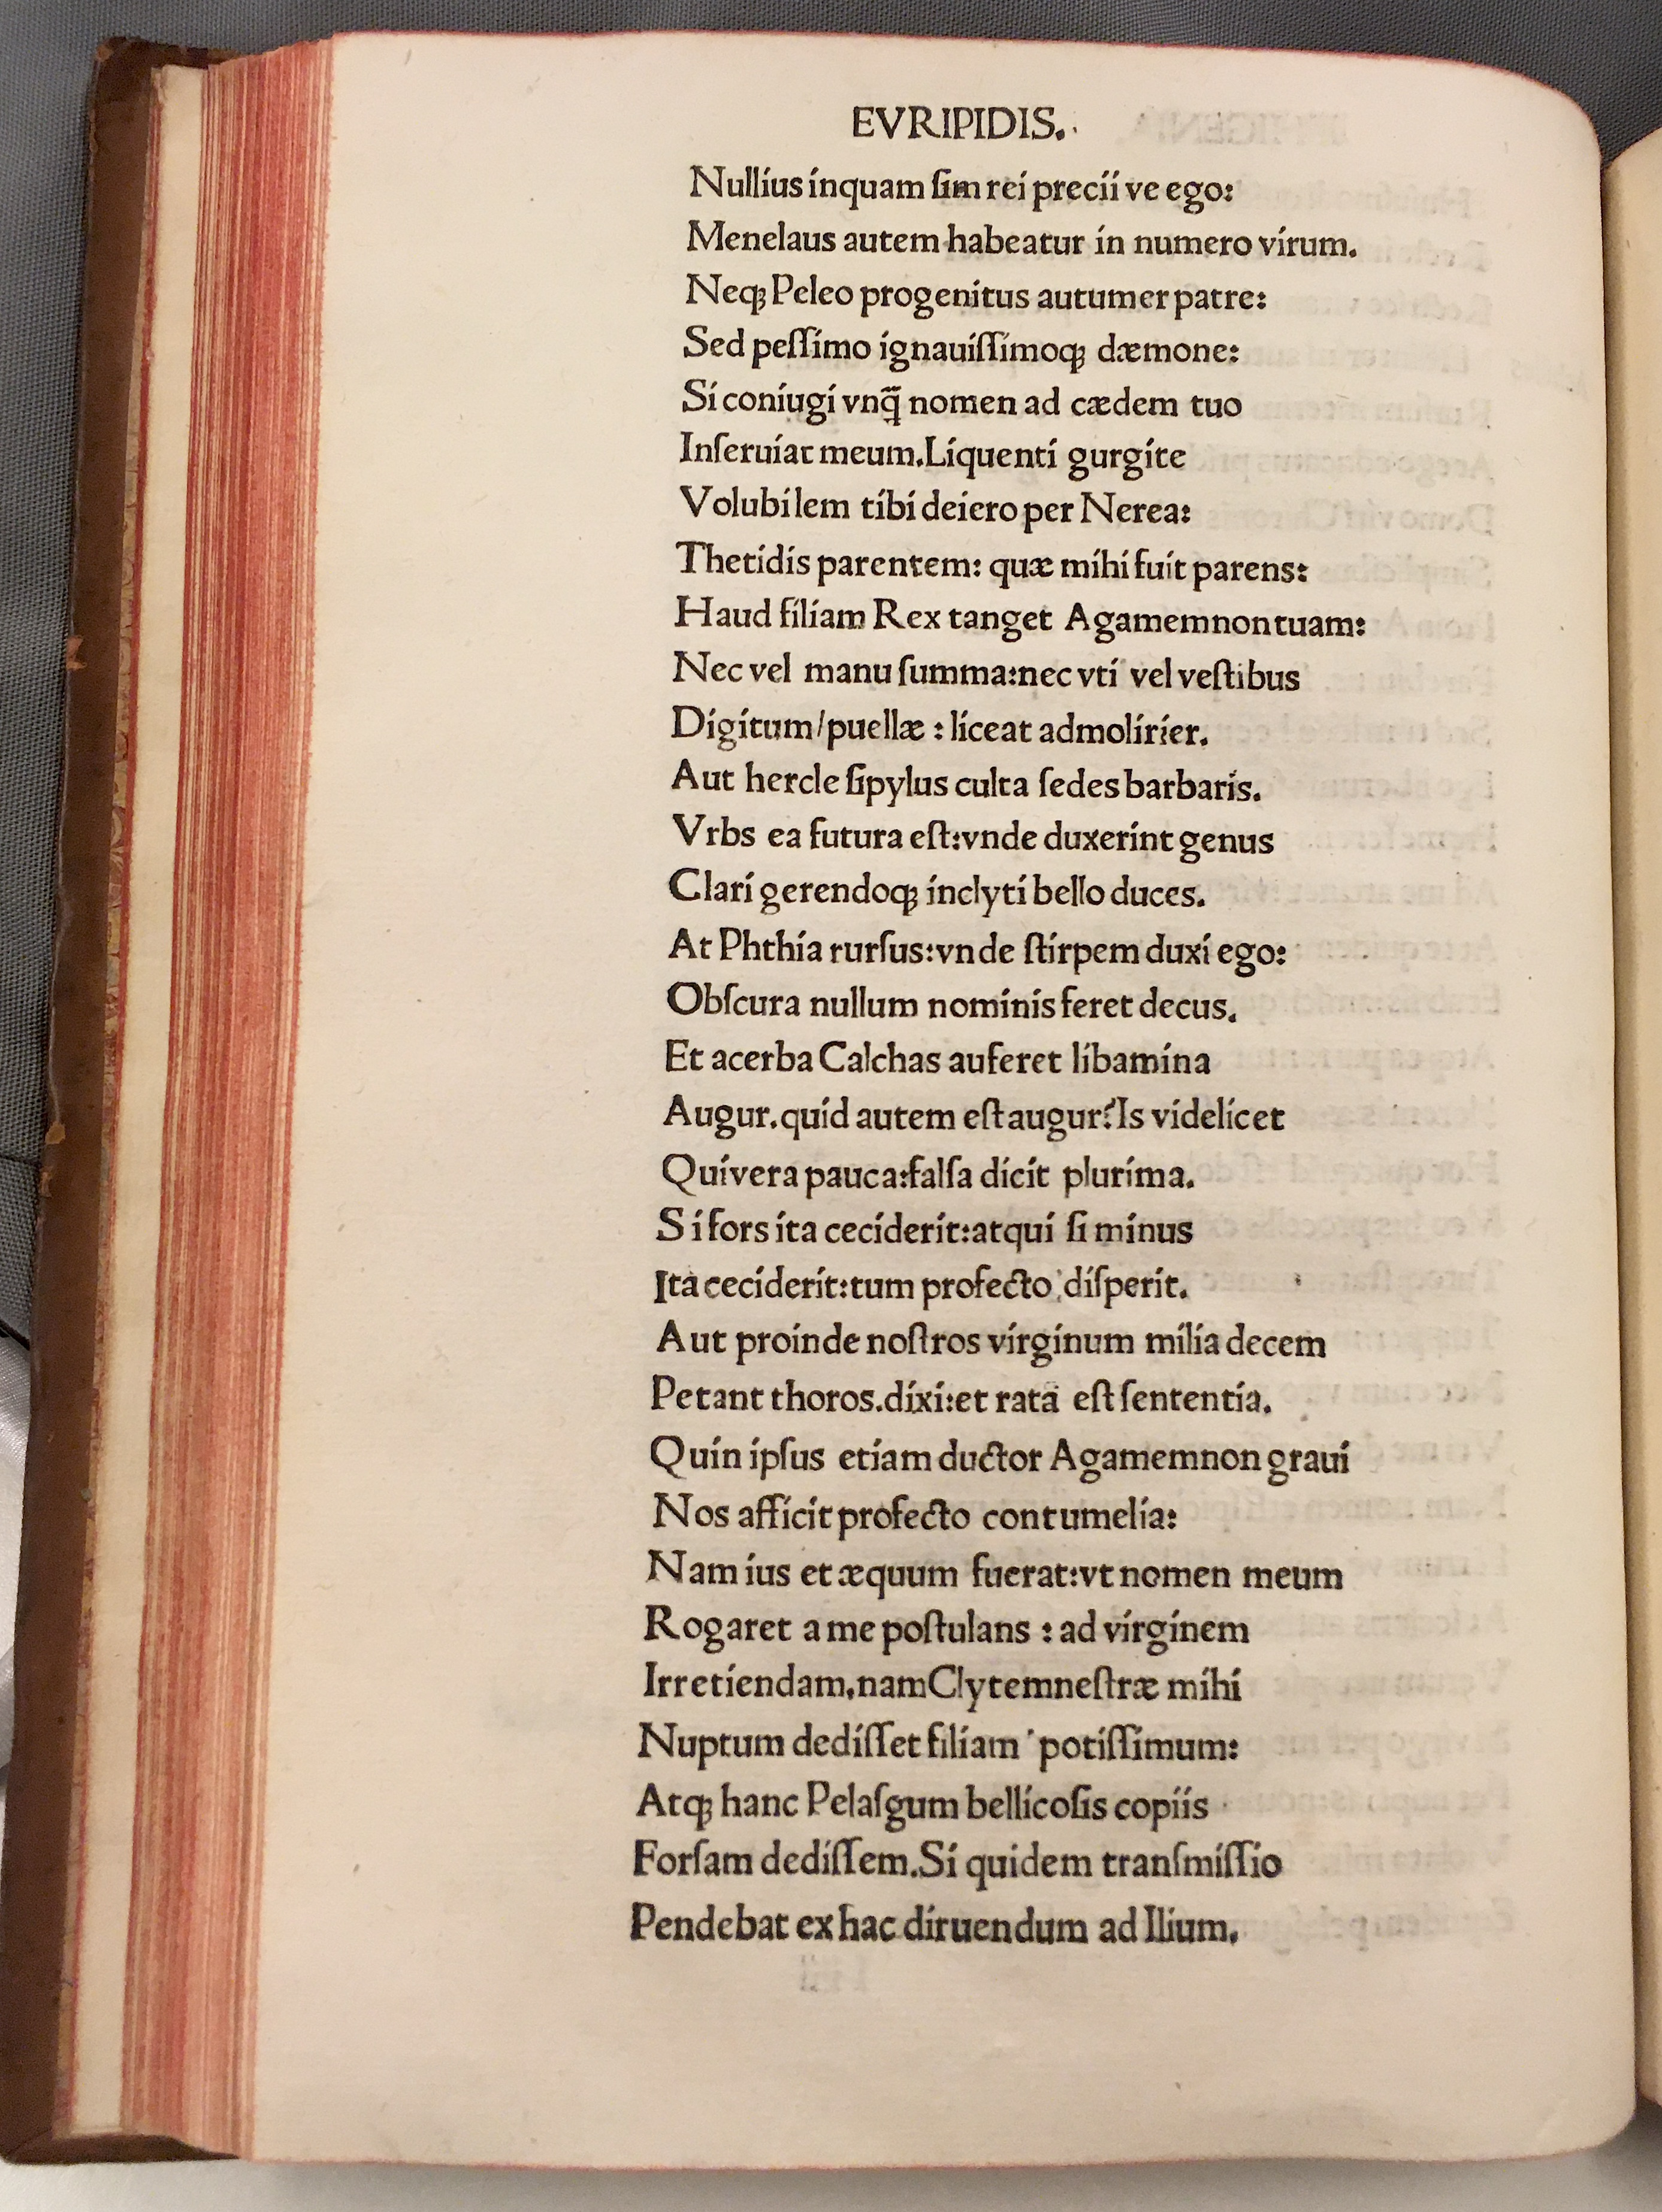 EVRIPIDIS.
Nullius inquam ſim rei precii ve ego:
Menelaus autem habeatur in numero virum.
Neqꝫ Peleo progenitus autumer patre:
Sed peſſimo ignauiſſimoqꝫ dæmone:
Si coniugi vnq̃ nomen ad cædem tuo
Inſeruiat meum. Liquenti gurgite
Volubilem tibi deiero per Nerea:
Thetidis parentem: quæ mihi fuit parens:
Haud filiam Rex tanget Agamemnon tuam:
Nec vel manu ſumma: nec vti vel veſtibus
Digitum/puellæ : liceat admolirier.
Aut hercle ſipylus culta ſedes barbaris.
Vrbs ea futura eſt: vnde duxerint genus
Clari gerendoqꝫ inclyti bello duces.
At Phthia rurſus: vnde ſtirpem duxi ego:
Obſcura nullum nominis feret decus.
Et acerba Calchas auferet libamina
Augur. quid autem eſt augur? Is videlicet
Qui vera pauca: falſa dicit plurima.
Si fors ita ceciderit: atqui ſi minus
Ita ceciderit: tum profecto diſperit.
Aut proinde noſtros virginum milia decem
Petant thoros. dixi: et rata eſt ſententia.
Quin ipſus etiam ductor Agamemnon graui
Nos afficit profecto contumelia:
Nam ius et æquum fuerat: vt nomen meum
Rogaret a me poſtulans : ad virginem
Irretiendam. nam Clytemneſtræ mihi
Nuptum dediſſet filiam potiſſimum:
Atqꝫ hanc Pelaſgum bellicoſis copiis
Forſam dediſſem. Si quidem tranſmiſſio
Pendebat ex hac diruendum ad Ilium.